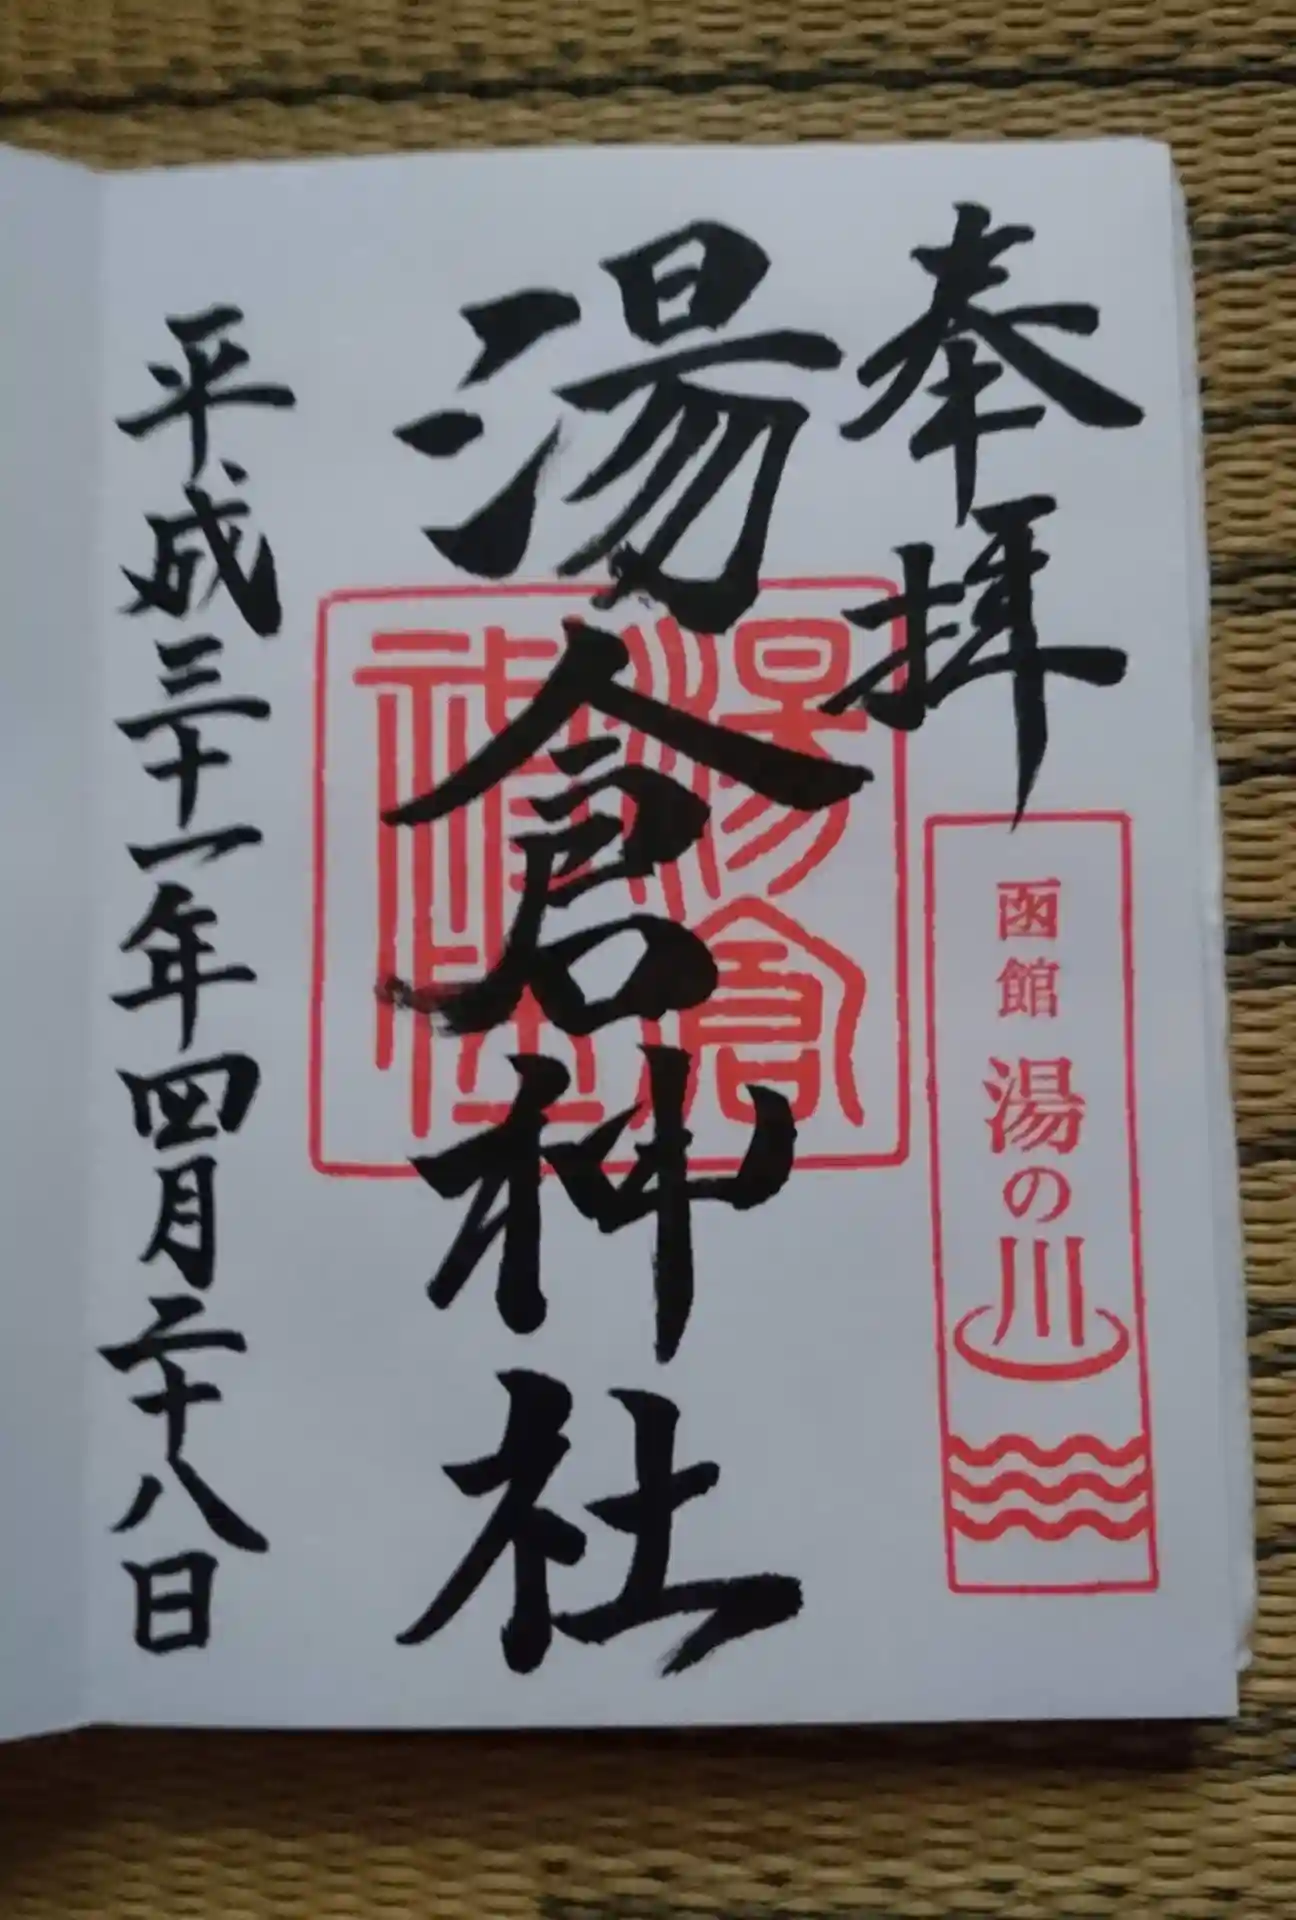 奉拝
函館 湯の川
湯倉神社
湯倉
神社
平成三十一年四月二十八日